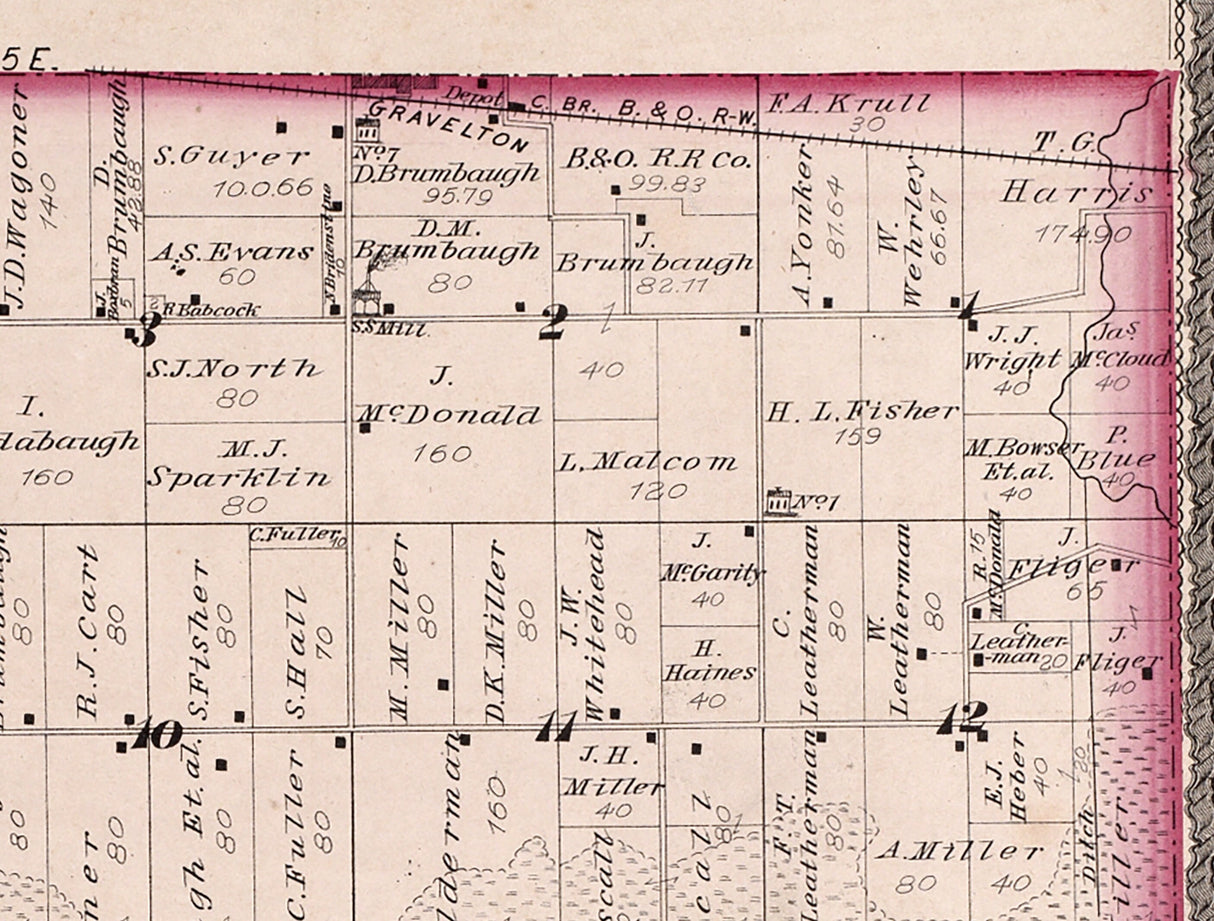 5 E.
J.D. Wagoner
140
D.
Brumbaugh
42.88
J.
Boardman
5
S. Guyer
100.66
A.S. Evans
60
2
R Babcock
N. Bridenstine
10
GRAVELTON
Depot
C. BR. B. & O. R-W.
No 7
D. Brumbaugh
95.79
D. M.
Brumbaugh
80
S.S Mill.
B. & O. R.R Co.
99.83
J.
Brumbaugh
82.11
F.A. Krull
30
A. Yonker
81.64
W.
Wehrley
66.67
T. G.
Harris
174.90
3
2
1
1
I.
dabaugh
160
S.J. North
80
M. J.
Sparklin
80
J.
McDonald
160
40
L. Malcom
120
H. L. Fisher
159
No 1
J. J.
Wright
40
Jas
McCloud
40
M. Bowser
Et. al.
40
P.
Blue
40
80
R. J. Cart
80
S. Fisher
80
C. Fuller
10
S. Hall
70
M. Miller
80
D.K. Miller
80
J. W.
Whitehead
80
J.
McGarity
40
H.
Haines
40
C.
Leatherman
80
W.
Leatherman
80
R.
McDonald
15
J.
Fliger
65
C.
Leather-
-man 20
J.
Fliger
40
10
11
12
80
ner
80
gh Et. al.
80
C. Fuller
80
lderman
160
J. H.
Miller
40
scall
call
80
F. T.
Leatherman
80
A. Miller
80
40
E. J.
Heber
40
Ditch
120
iller